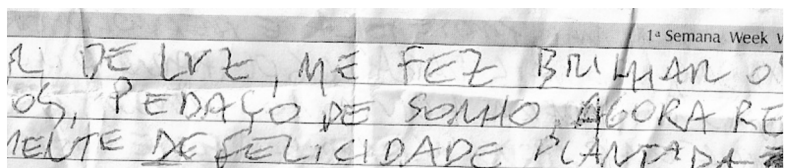 1ª Semana Week
DE LUZ, ME FEZ BRILHAR O
OS, PEDAÇO DE SONHO, AGORA RE
MENTE DE FELICIDADE PLANTADA